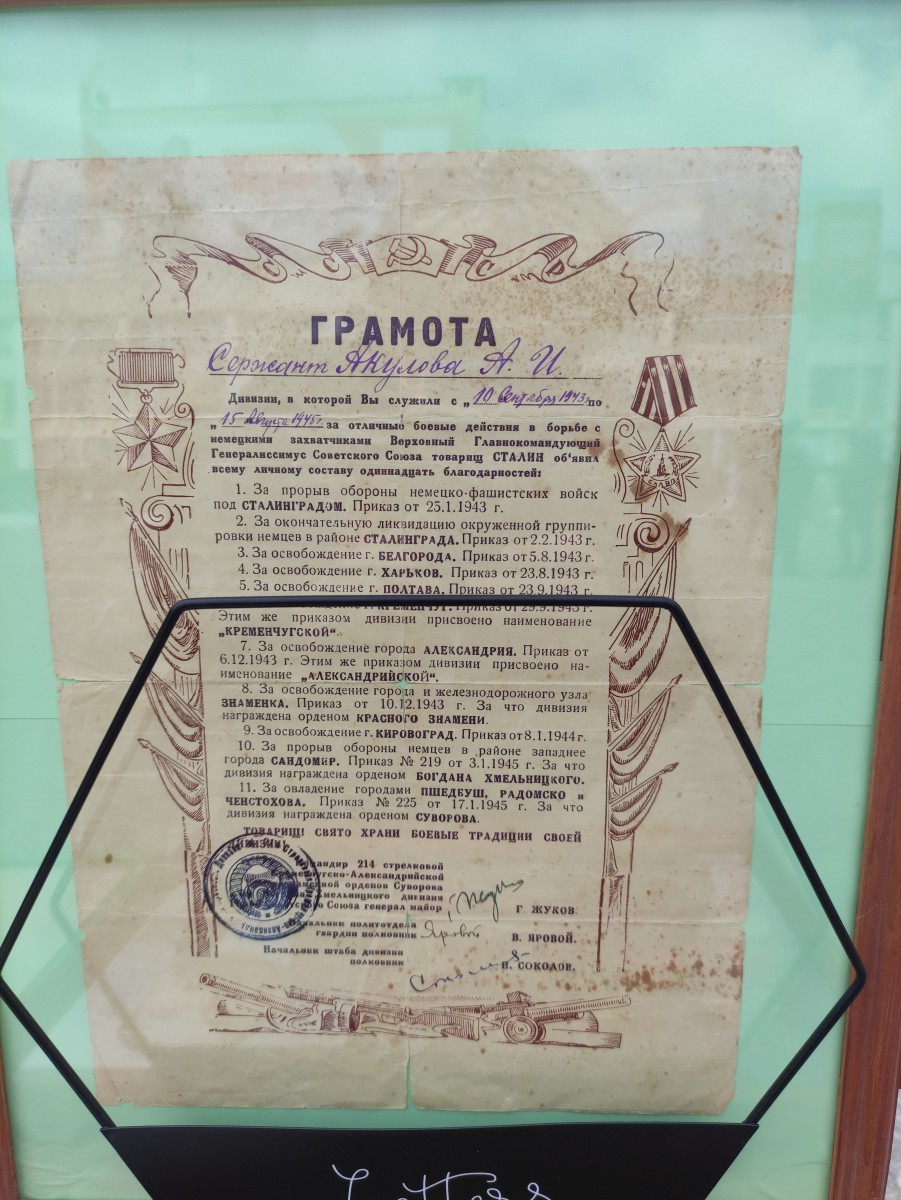 СССР
ГРАМОТА
Сержант Акулова А. И.
Дивизии, в которой Вы служили с „10 Сентября 1943 г. по
„15 Августа 1945 г. за отличные боевые действия в борьбе с
немецкими захватчиками Верховный Главнокомандующий
Генералиссимус Советского Союза товарищ СТАЛИН об'явил
всему личному составу одиннадцать благодарностей:
1. За прорыв обороны немецко-фашистских войск
под СТАЛИНГРАДОМ. Приказ от 25.1.1943 г.
2. За окончательную ликвидацию окруженной группи-
ровки немцев в районе СТАЛИНГРАДА. Приказ от 2.2.1943 г.
3. За освобождение г. БЕЛГОРОДА. Приказ от 5.8.1943 г.
4. За освобождение г. ХАРЬКОВ. Приказ от 23.8.1943 г.
5. За освобождение г. ПОЛТАВА. Приказ от 23.9.1943 г.
г. КРЕМЕНЧУГ. Приказ от 29.9.1943 г.
Этим же приказом дивизии присвоено наименование
„КРЕМЕНЧУГСКОЙ“.
7. За освобождение города АЛЕКСАНДРИЯ. Приказ от
6.12.1943 г. Этим же приказом дивизии присвоено на-
именование „АЛЕКСАНДРИЙСКОЙ“.
8. За освобождение города и железнодорожного узла
ЗНАМЕНКА. Приказ от 10.12.1943 г. За что дивизия
награждена орденом КРАСНОГО ЗНАМЕНИ.
9. За освобождение г. КИРОВОГРАД. Приказ от 8.1.1944 г.
10. За прорыв обороны немцев в районе западнее
города САНДОМИР. Приказ № 219 от 3.1.1945 г. За что
дивизия награждена орденом БОГДАНА ХМЕЛЬНИЦКОГО.
11. За овладение городами ПШЕДБУШ, РАДОМСКО и
ЧЕНСТОХОВА. Приказ № 225 от 17.1.1945 г. За что
дивизия награждена орденом СУВОРОВА.
ТОВАРИЩ! СВЯТО ХРАНИ БОЕВЫЕ ТРАДИЦИИ СВОЕЙ
214 стрелковой
Александрийской
орденов Суворова
Хмельницкого дивизии
Союза генерал майор Г. ЖУКОВ.
политотдела
гвардии полковник Яровой В. ЯРОВОЙ.
Начальник штаба дивизии
полковник СОКОЛОВ.
СЛАВА
Letters